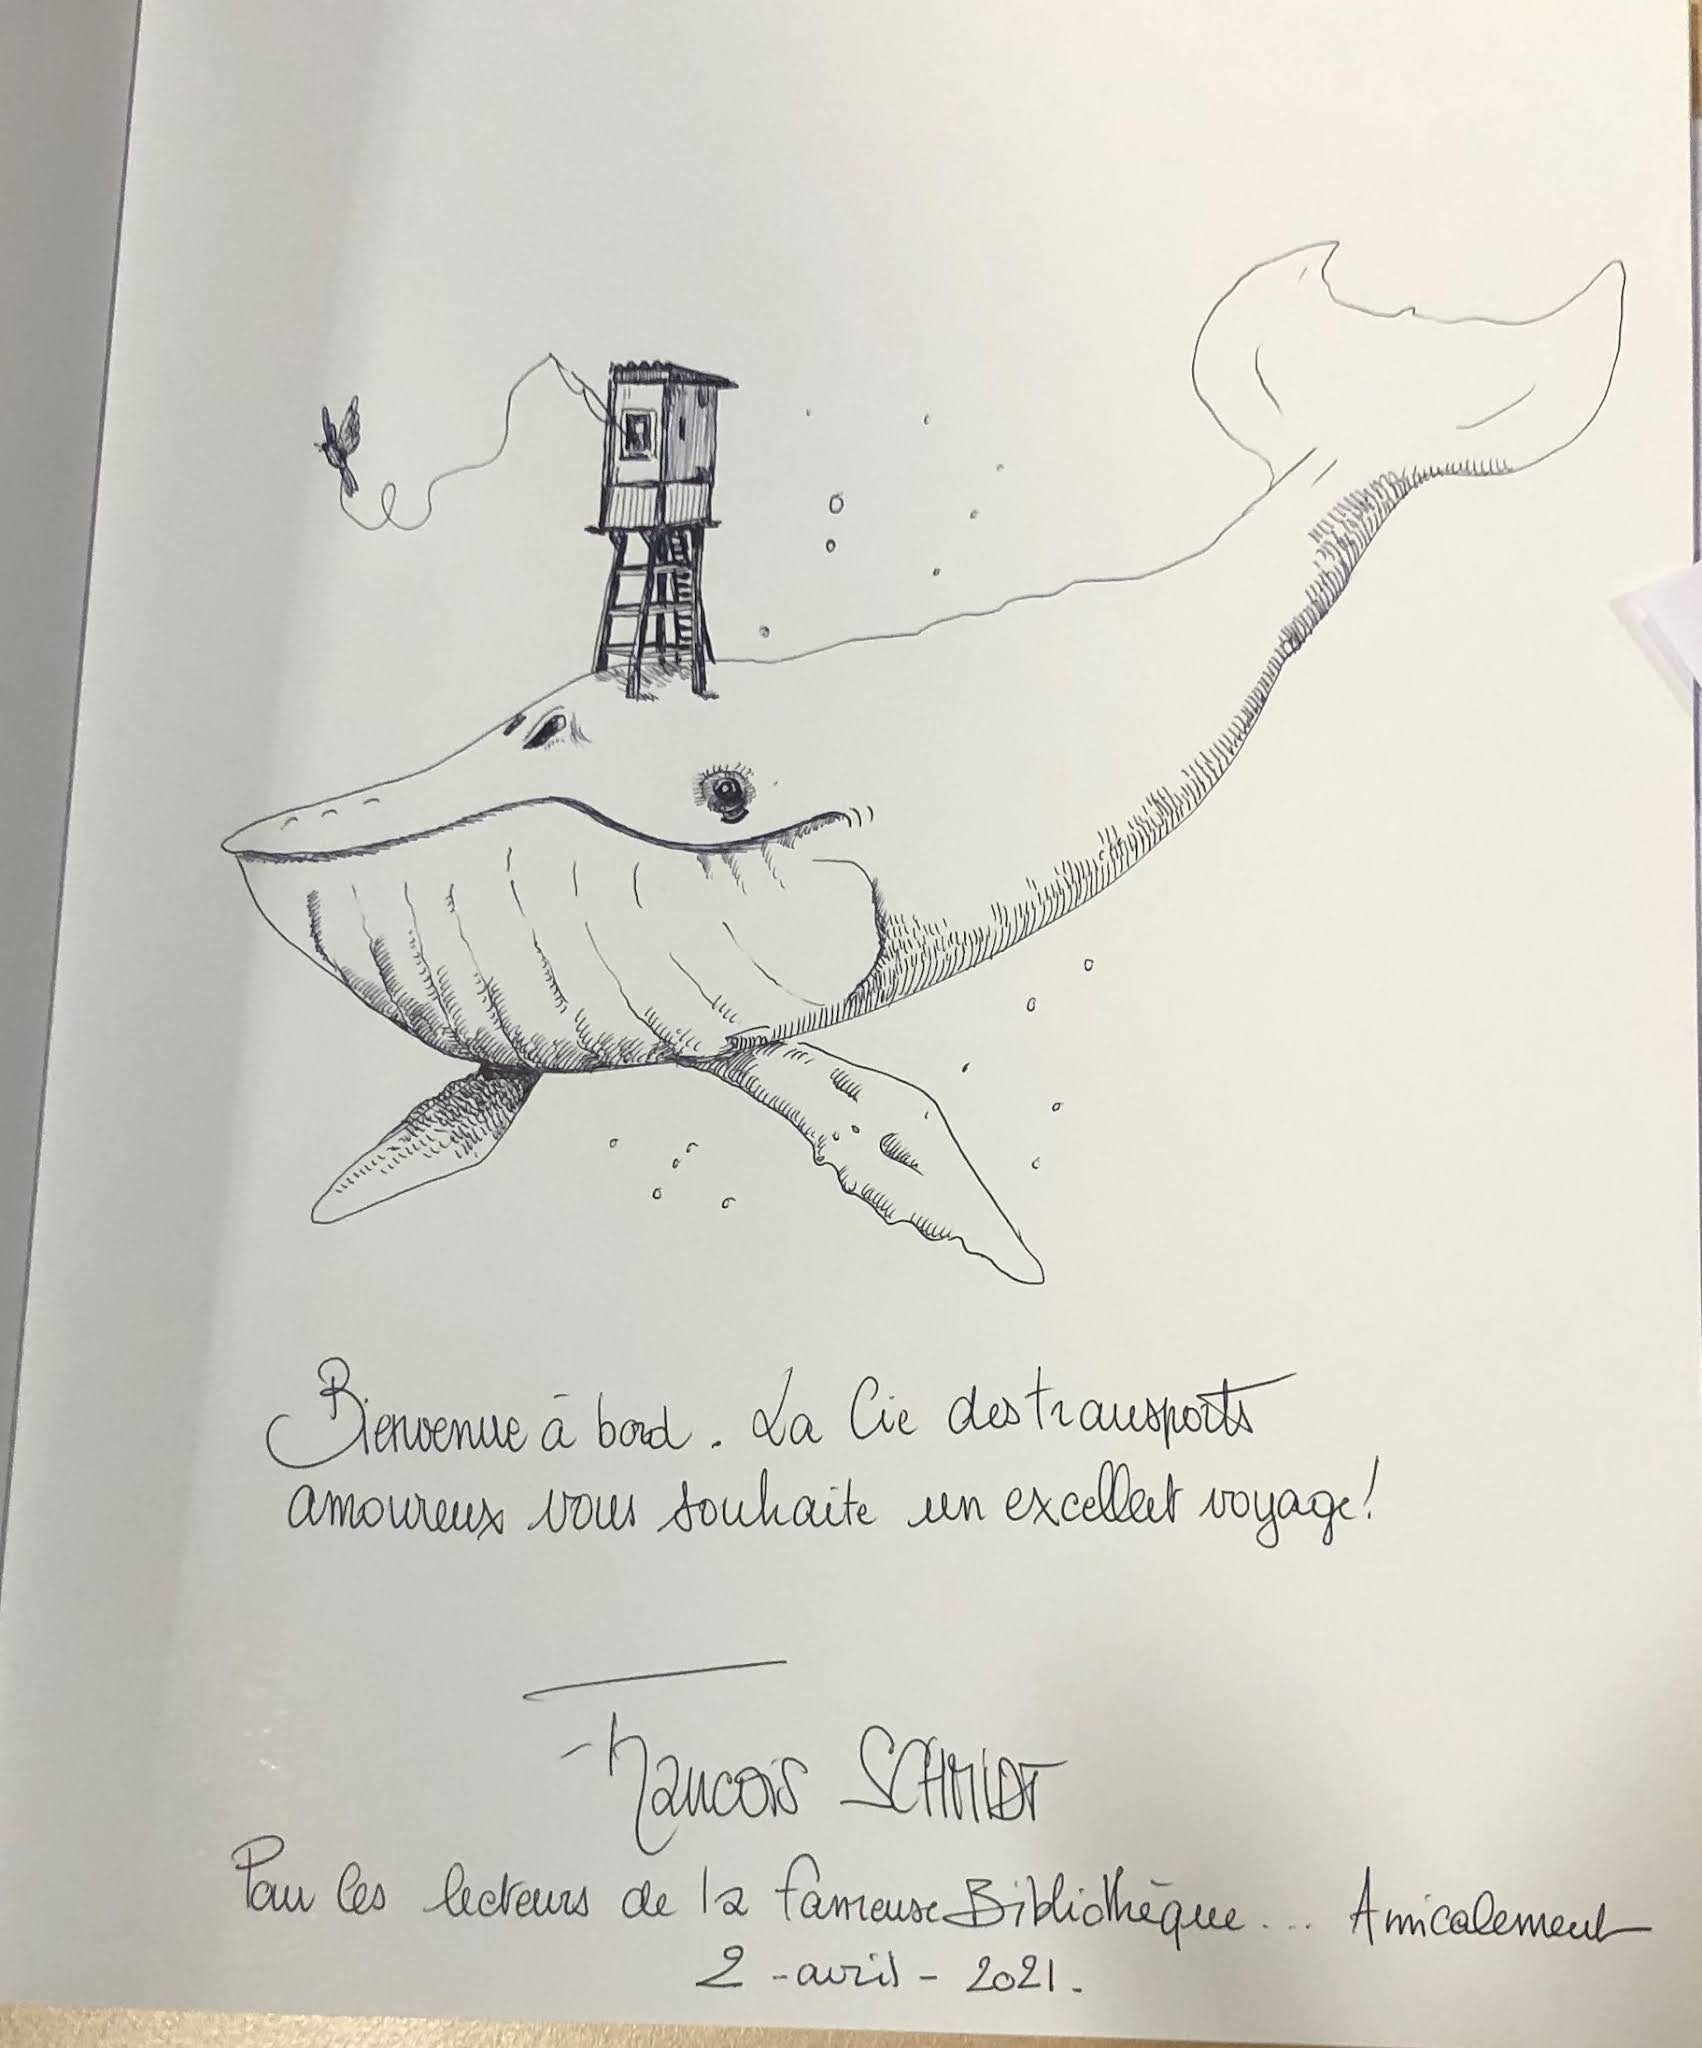 Bienvenue à bord. La Cie des transports
amoureux vous souhaite un excellent voyage!
François SCHMIDT
Pour les lecteurs de la fameuse Bibliothèque... Amicalement
2 - avril - 2021.